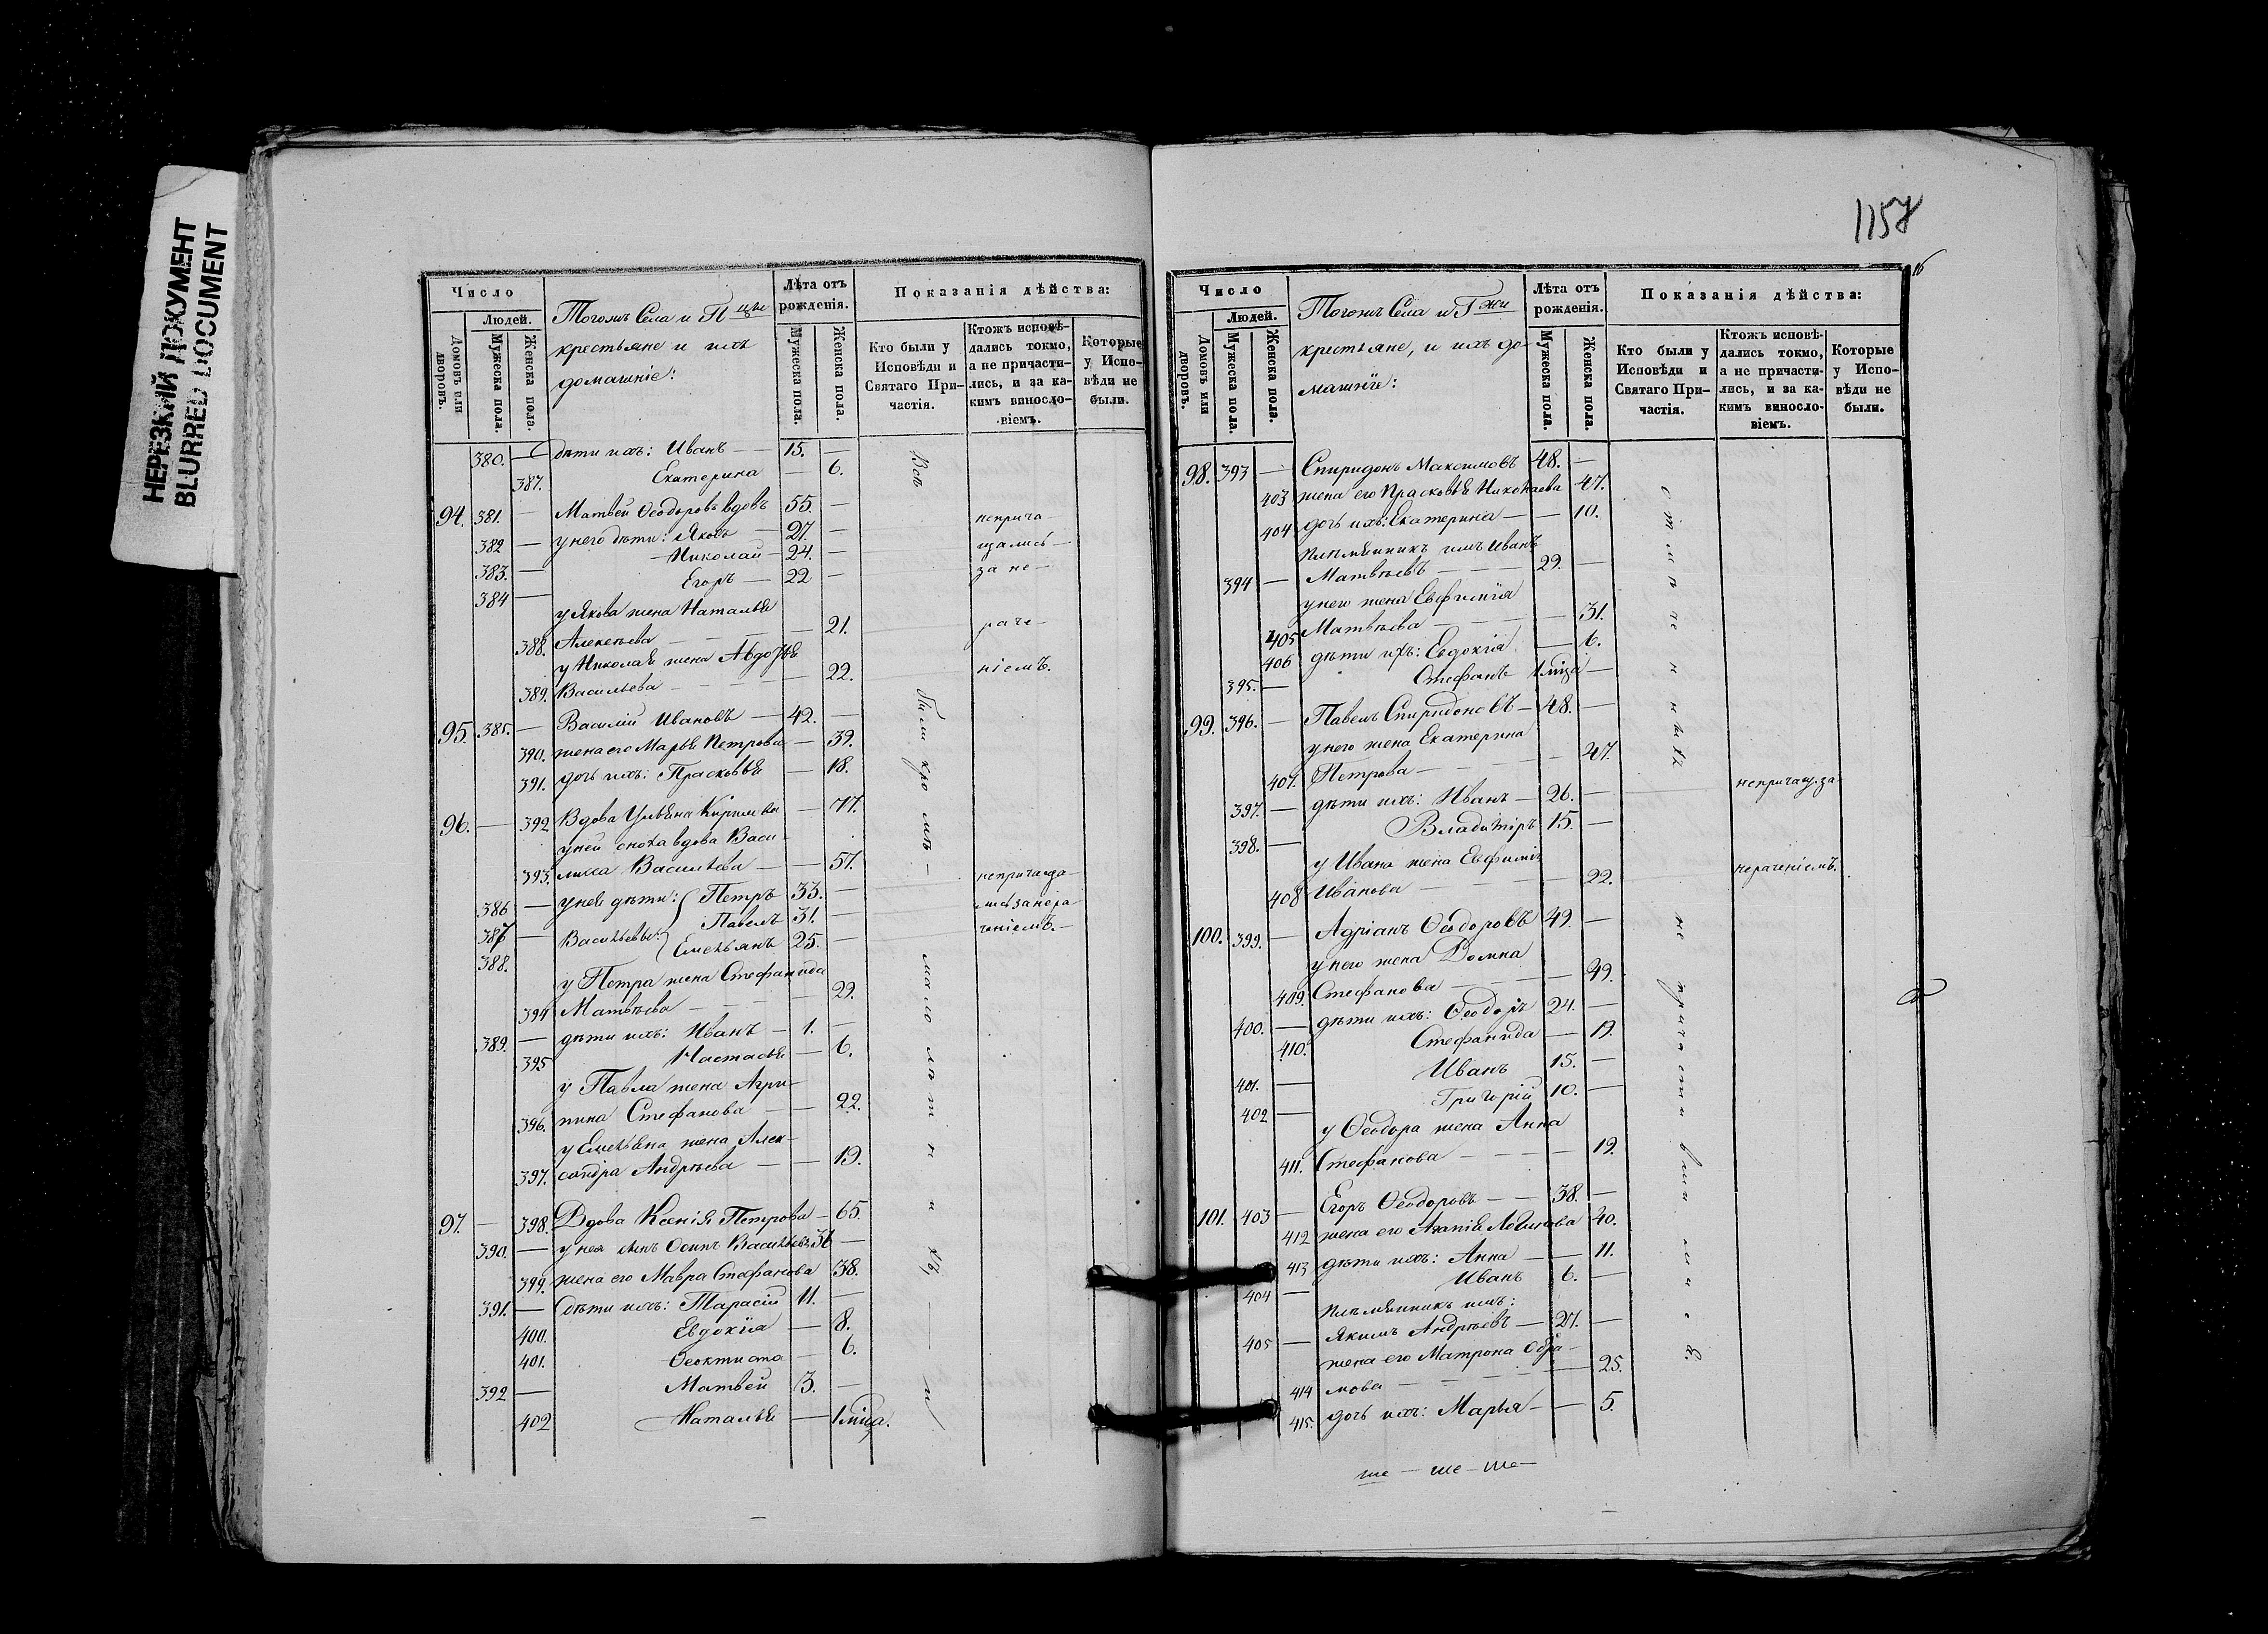 НЕРЕЗКИЙ ДОКУМЕНТ
BLURRED DOCUMENT
Число
Людей.
Домовъ или дворовъ.
Мужеска пола.
Женска пола.
Тогожъ Села и П
крестьяне и ихъ
домашніе:
Лѣта отъ рожденія.
Мужеска пола.
Женска пола.
Показанія дѣйства:
Кто были у Исповѣди и Святаго Причастія.
Ктожъ исповѣдались токмо, а не причастились, и за какимъ винословіемъ.
Которые у Исповѣди не были.
380. — дѣти ихъ: Иванъ — 15. —
387. Екатерина — 6.
94. 381. — Матвей Ѳеодоровъ вдовъ 55. —
382 — у него дѣти: Яковъ — 27. —
383. — Николай — 24. —
384 — Егоръ — 22 —
у Якова жена Наталья
388. Алексѣева — 21.
у Николая жена Авдотья
389. Васильева — 22.
неприча
щались —
за не —
раче —
ніемъ.
95. 385. — Василій Ивановъ — 42. —
390. жена его Марья Петрова — 39.
391. дочь ихъ: Прасковья — 18.
96. — 392 Вдова Ульяна Кирилова — 77.
у ней сноха вдова Васи-
393. лиса Васильева — 57.
386 — у нея дѣти: Петръ 33. —
387 — Васильевы: Павелъ 31. —
388. Емельянъ 25. —
непричаща-
лись занера-
ченіемъ. —
у Петра жена Стефанида
394 Матвѣева — 29.
389. — дѣти ихъ: Иванъ — 1. —
395 Настасья — 6.
у Павла жена Агри-
396. пина Стефанова — 22.
у Емельяна жена Алек-
397. сандра Андрѣева — 19.
97. — 398. Вдова Ксенія Петрова — 65.
390. — у нея сынъ Осипъ Васильевъ 36 —
399. жена его Мавра Стефанова 38.
391. — дѣти ихъ: Тарасій 11. —
400. Евдокія — 8.
401. Ѳеоктиста — 6.
392 — Матвей 3. —
402 Наталья — 1 мца.
Всѣ были кромѣ — малолѣтн
1157
Число
Людей.
Домовъ или дворовъ.
Мужеска пола.
Женска пола.
Тогожъ Села и Гжи
крестьяне, и ихъ до-
машніе:
Лѣта отъ рожденія.
Мужеска пола.
Женска пола.
Показанія дѣйства:
Кто были у Исповѣди и Святаго Причастія.
Ктожъ исповѣдались токмо, а не причастились, и за какимъ винословіемъ.
Которые у Исповѣди не были.
98. 393 — Спиридонъ Максимовъ 48. —
403 жена его Прасковья Николаева 47.
404 дочь ихъ: Екатерина — — 10.
племянникъ ихъ Иванъ
394 — Матвѣевъ — 29. —
у него жена Евфимія
405 Матвѣева — 31.
406 дѣти ихъ: Евдокія — 6.
395. — Стефанъ 1 мца —
99. 396. — Павелъ Спиридоновъ — 48. —
у него жена Екатерина
407. Петрова — 47.
397. — дѣти ихъ: Иванъ — 26. —
398. — Владимиръ 15. —
у Ивана жена Евфимія
408 Иванова — 22.
непричащ. за-
нераченіемъ.
100. 399. — Адріанъ Ѳеодоровъ 49. —
у него жена Домна
409. Стефанова — 49.
400. — дѣти ихъ: Ѳеодоръ 24. —
410. Стефанида — 19.
401. — Иванъ 15. —
402 — Григорій 10. —
у Ѳеодора жена Анна
411. Стефанова — 19.
101. 403 — Егоръ Ѳеодоровъ — 38. —
412 жена его 40.
413 дѣти ихъ: Анна — 11.
404 — Иванъ 6. —
племянникъ ихъ:
405 — Якимъ Андрѣевъ — 27. —
жена его Матрона
414 мова — 25.
415. дочь ихъ: Марья — 5.